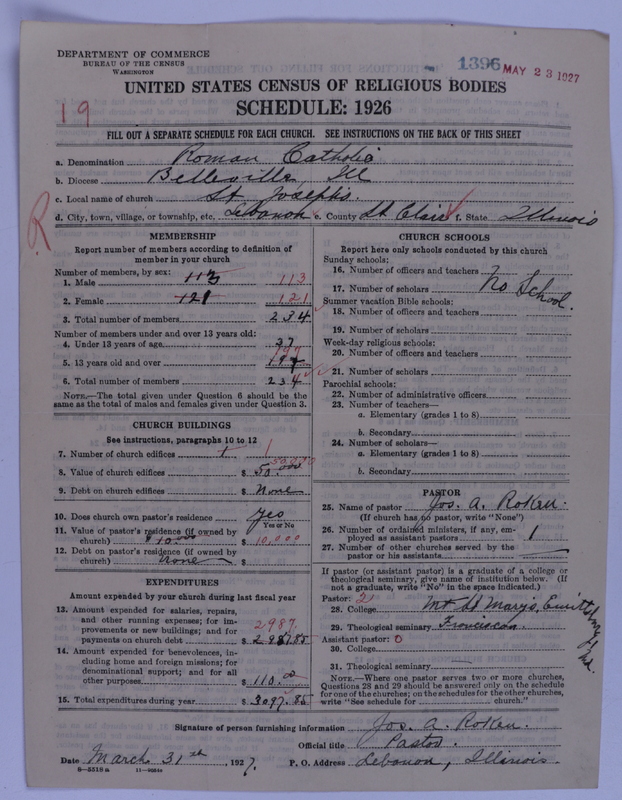 DEPARTMENT OF COMMERCE
BUREAU OF THE CENSUS
WASHINGTON
1396 MAY 23 1927
UNITED STATES CENSUS OF RELIGIOUS BODIES
19
SCHEDULE: 1926
FILL OUT A SEPARATE SCHEDULE FOR EACH CHURCH. SEE INSTRUCTIONS ON THE BACK OF THIS SHEET
a. Denomination Roman Catholic
b. Diocese Belleville Ill
c. Local name of church St. Josephs.
d. City, town, village, or township, etc. Lebanon e. County St Clair f. State Illinois
R
MEMBERSHIP
Report number of members according to definition of member in your church
Number of members, by sex:
1. Male 113 113
2. Female 121 121
3. Total number of members 234
Number of members under and over 13 years old:
4. Under 13 years of age 37
5. 13 years old and over 197 197
6. Total number of members 234
NOTE.—The total given under Question 6 should be the
same as the total of males and females given under Question 3.
CHURCH BUILDINGS
See instructions, paragraphs 10 to 12
7. Number of church edifices 1 1
8. Value of church edifices $ 50.000 50,000
9. Debt on church edifices $ None
10. Does church own pastor's residence Yes
Yes or No
11. Value of pastor's residence (if owned by
church) $10.000 $ 10,000
12. Debt on pastor's residence (if owned by
church) None $
EXPENDITURES
Amount expended by your church during last fiscal year
13. Amount expended for salaries, repairs,
and other running expense; for im-
provements or new buildings; and for
payments on church debt $ 2987.85 2987.
14. Amount expended for benevolences, in-
cluding home and foreign missions; for
denominational support; and for all
other purposes $ 110.00
15. Total expenditures during year $ 3097.85
CHURCH SCHOOLS
Report here only schools conducted by this church
Sunday schools:
16. Number of officers and teachers
17. Number of scholars No School.
Summer vacation Bible schools:
18. Number of officers and teachers
19. Number of scholars
Week-day religious schools:
20. Number of officers and teachers
21. Number of scholars
Parochial schools:
22. Number of administrative officers
23. Number of teachers—
a. Elementary (grades 1 to 8)
b. Secondary
24. Number of scholars—
a. Elementary (grades 1 to 8)
b. Secondary
PASTOR
25. Name of pastor Jos. A. Rokeu.
(If church has no pastor, write "None")
26. Number of ordained ministers, if any, em-
ployed as assistant pastors 1
27. Number of other churches served by the
pastor or his assistants
If pastor (or assistant pastor) is a graduate of a college or
theological seminary, give name of institution below. (If
not a graduate, write "No" in the space indicated.)
Pastor: 21
28. College Mt St Marys, Emittsburg Md.
29. Theological seminary Franciscan
Assistant pastor: 0
30. College
31. Theological seminary
NOTE.—Where one pastor serves two or more churches,
Questions 28 and 29 should be answered only on the schedule
for one of the churches; on the schedules for the other churches,
write "See schedule for church."
Signature of person furnishing information Jos. A. Rokeu.
Official title Pastor.
Date March 31st, 1927. P. O. Address Lebanon, Illinois.
8—5518a 11—9054a